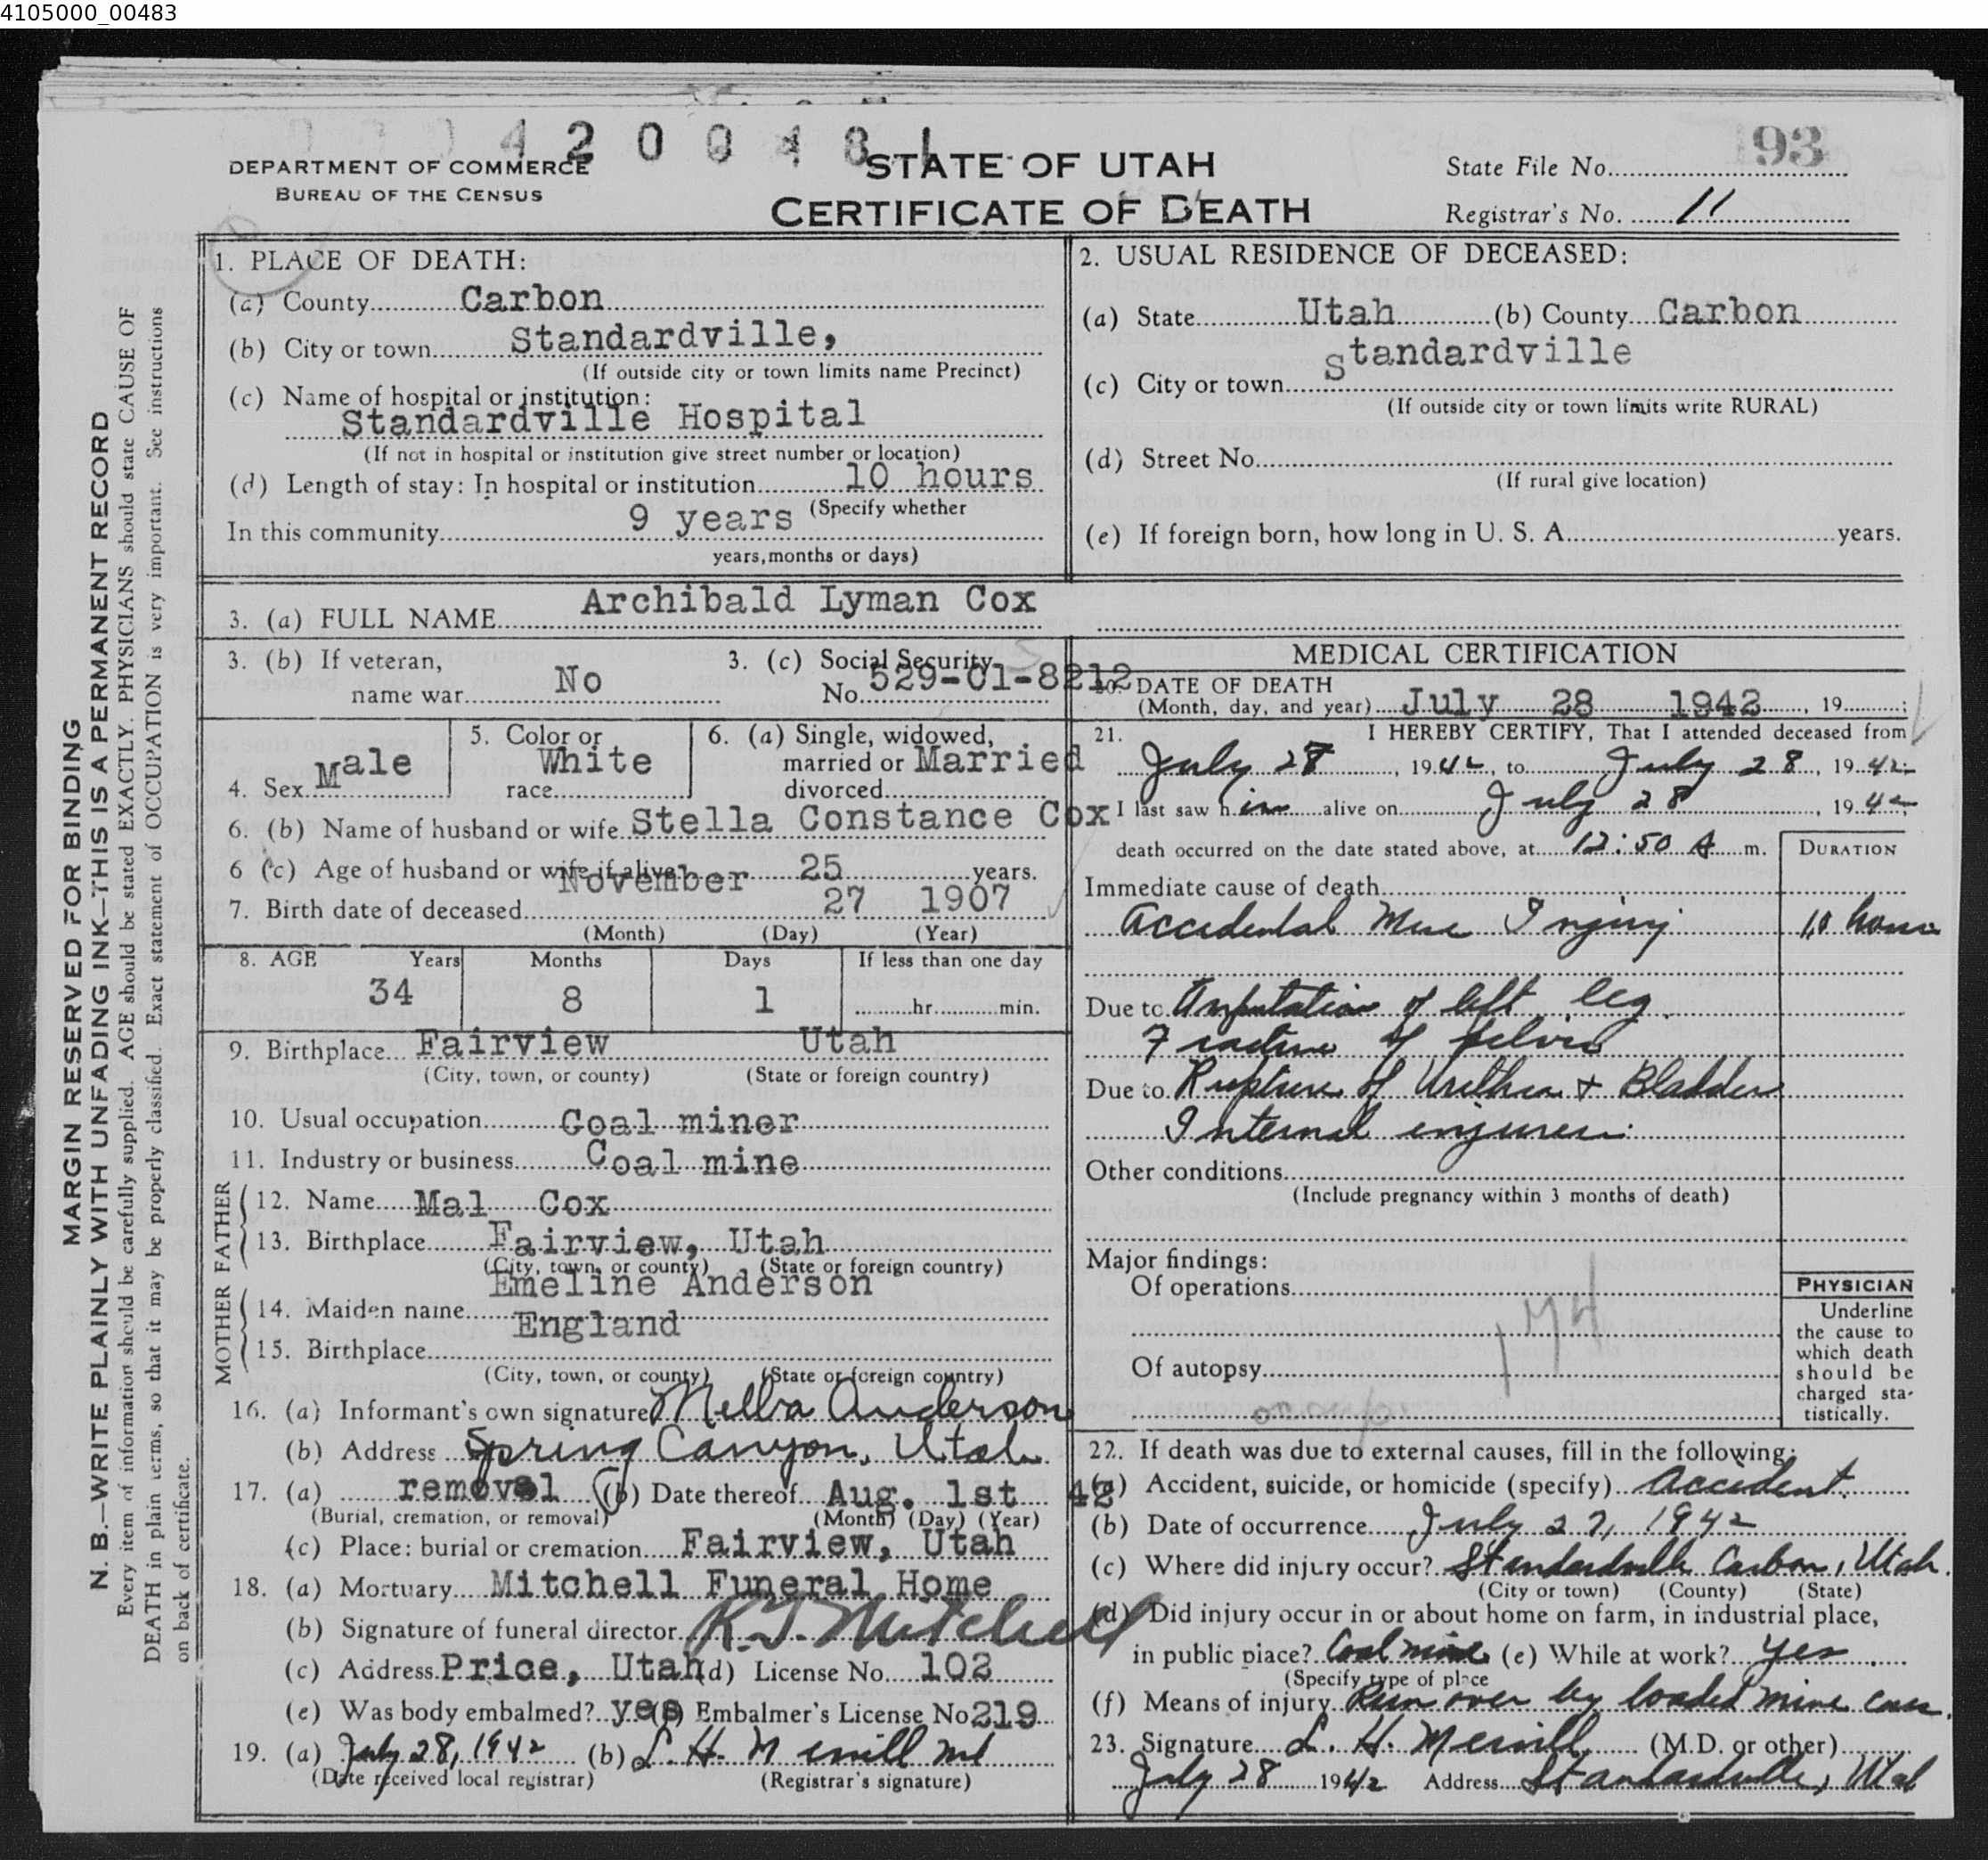 4105000_00483
4 2 0 0 4 8 1
93
DEPARTMENT OF COMMERCE
BUREAU OF THE CENSUS
STATE OF UTAH
CERTIFICATE OF DEATH
State File No.
Registrar's No. 11
MARGIN RESERVED FOR BINDING
N. B.—WRITE PLAINLY WITH UNFADING INK—THIS IS A PERMANENT RECORD
Every item of information should be carefully supplied. AGE should be stated EXACTLY. PHYSICIANS should state CAUSE OF
DEATH in plain terms, so that it may be properly classified. Exact statement of OCCUPATION is very important. See instructions
on back of certificate.
1. PLACE OF DEATH:
(a) County Carbon
(b) City or town Standardville,
(If outside city or town limits name Precinct)
(c) Name of hospital or institution:
Standardville Hospital
(If not in hospital or institution give street number or location)
(d) Length of stay: In hospital or institution 10 hours
(Specify whether
In this community 9 years
years, months or days)
2. USUAL RESIDENCE OF DECEASED:
(a) State Utah (b) County Carbon
(c) City or town Standardville
(If outside city or town limits write RURAL)
(d) Street No.
(If rural give location)
(e) If foreign born, how long in U. S. A. years.
3. (a) FULL NAME Archibald Lyman Cox
3. (b) If veteran,
name war No
3. (c) Social Security
No. 529-01-8212
4. Sex Male
5. Color or
race White
6. (a) Single, widowed,
married or
divorced Married
6. (b) Name of husband or wife Stella Constance Cox
6 (c) Age of husband or wife if alive 25 years.
7. Birth date of deceased November 27 1907
(Month) (Day) (Year)
8. AGE Years Months Days If less than one day
34 8 1 hr. min.
9. Birthplace Fairview Utah
(City, town, or county) (State or foreign country)
10. Usual occupation Coal miner
11. Industry or business Coal mine
FATHER
12. Name Mal Cox
13. Birthplace Fairview, Utah
(City, town, or county) (State or foreign country)
MOTHER
14. Maiden name Emeline Anderson
15. Birthplace England
(City, town, or county) (State or foreign country)
16. (a) Informant's own signature Melba Anderson
(b) Address Spring Canyon, Utah
17. (a) removal (b) Date thereof Aug. 1st 42
(Burial, cremation, or removal) (Month) (Day) (Year)
(c) Place: burial or cremation Fairview, Utah
18. (a) Mortuary Mitchell Funeral Home
(b) Signature of funeral director K.T. Mitchell
(c) Address Price, Utah (d) License No. 102
(e) Was body embalmed? yes (f) Embalmer's License No 219
19. (a) July 28, 1942 (b) L. H. Merrill Md
(Date received local registrar) (Registrar's signature)
MEDICAL CERTIFICATION
20. DATE OF DEATH
(Month, day, and year) July 28 1942, 19 ;
21. I HEREBY CERTIFY, That I attended deceased from
July 28, 1942, to July 28, 1942;
I last saw him alive on July 28, 1942,
death occurred on the date stated above, at 12:50 A m.
DURATION
Immediate cause of death
Accidental Mine Injury 10 hours
Due to Amputation of left leg
Fracture of pelvis
Due to Rupture of Urethra & Bladder
Internal injuries.
Other conditions
(Include pregnancy within 3 months of death)
Major findings:
Of operations
174
Of autopsy
PHYSICIAN
Underline
the cause to
which death
should be
charged sta-
tistically.
22. If death was due to external causes, fill in the following:
(a) Accident, suicide, or homicide (specify) Accident.
(b) Date of occurrence July 27, 1942
(c) Where did injury occur? Standardville Carbon, Utah.
(City or town) (County) (State)
(d) Did injury occur in or about home on farm, in industrial place,
in public place? Coal mine (e) While at work? Yes
(Specify type of place
(f) Means of injury Run over by loaded mine cars.
23. Signature L. H. Merrill (M.D. or other)
July 28 1942 Address Standardville, Utah